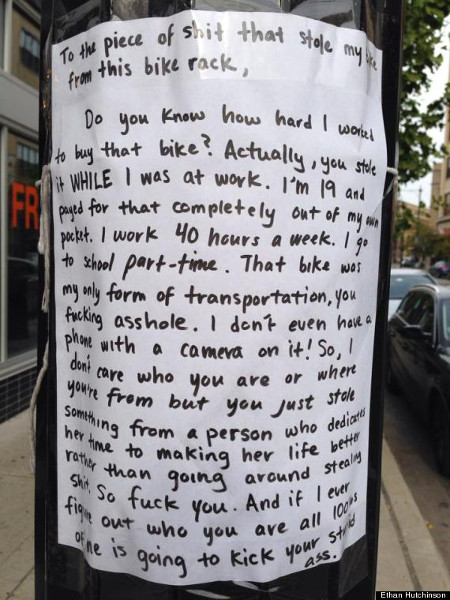 To the piece of shit that stole my bike
from this bike rack,
Do you know how hard I worked
to buy that bike? Actually, you stole
it WHILE I was at work. I'm 19 and
payed for that completely out of my own
pocket. I work 40 hours a week. I go
to school part-time. That bike was
my only form of transportation, you
fucking asshole. I don't even have a
phone with a camera on it! So, I
don't care who you are or where
you're from but you just stole
something from a person who dedicates
her time to making her life better
rather than going around stealing
shit. So fuck you. And if I ever
figure out who you are all 100lbs
of me is going to kick your stupid
ass.
FR
Ethan Hutchinson